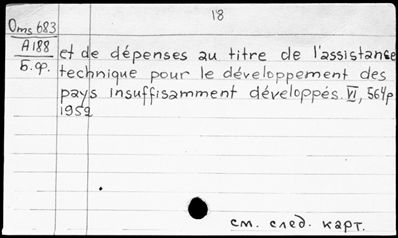 18
Oms 683
A188
Б.ф.
et de dépenses au titre de l'assistance
technique pour le développement des
pays insuffisamment développés. VI, 564p
1952
см. след. карт.